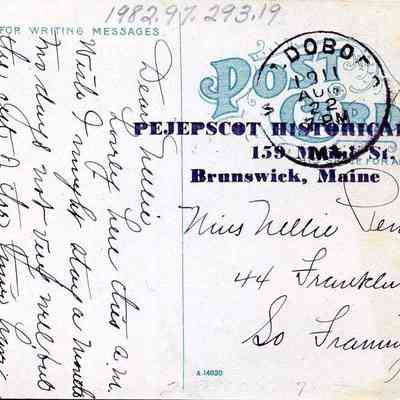 1982.97.293.19
FOR WRITING MESSAGES
Dear Nellie
Lonely here this a.m.
Wish I might stay a month
Two days not very well but
the rest of the time
POST
CARD
DOBO
1911
AUG
22
PM
ME.
PEJEPSCOT HISTORICAL
159 St.
Brunswick, Maine
FOR A
Miss Nellie
44 Franklin
So Framin
A-14020